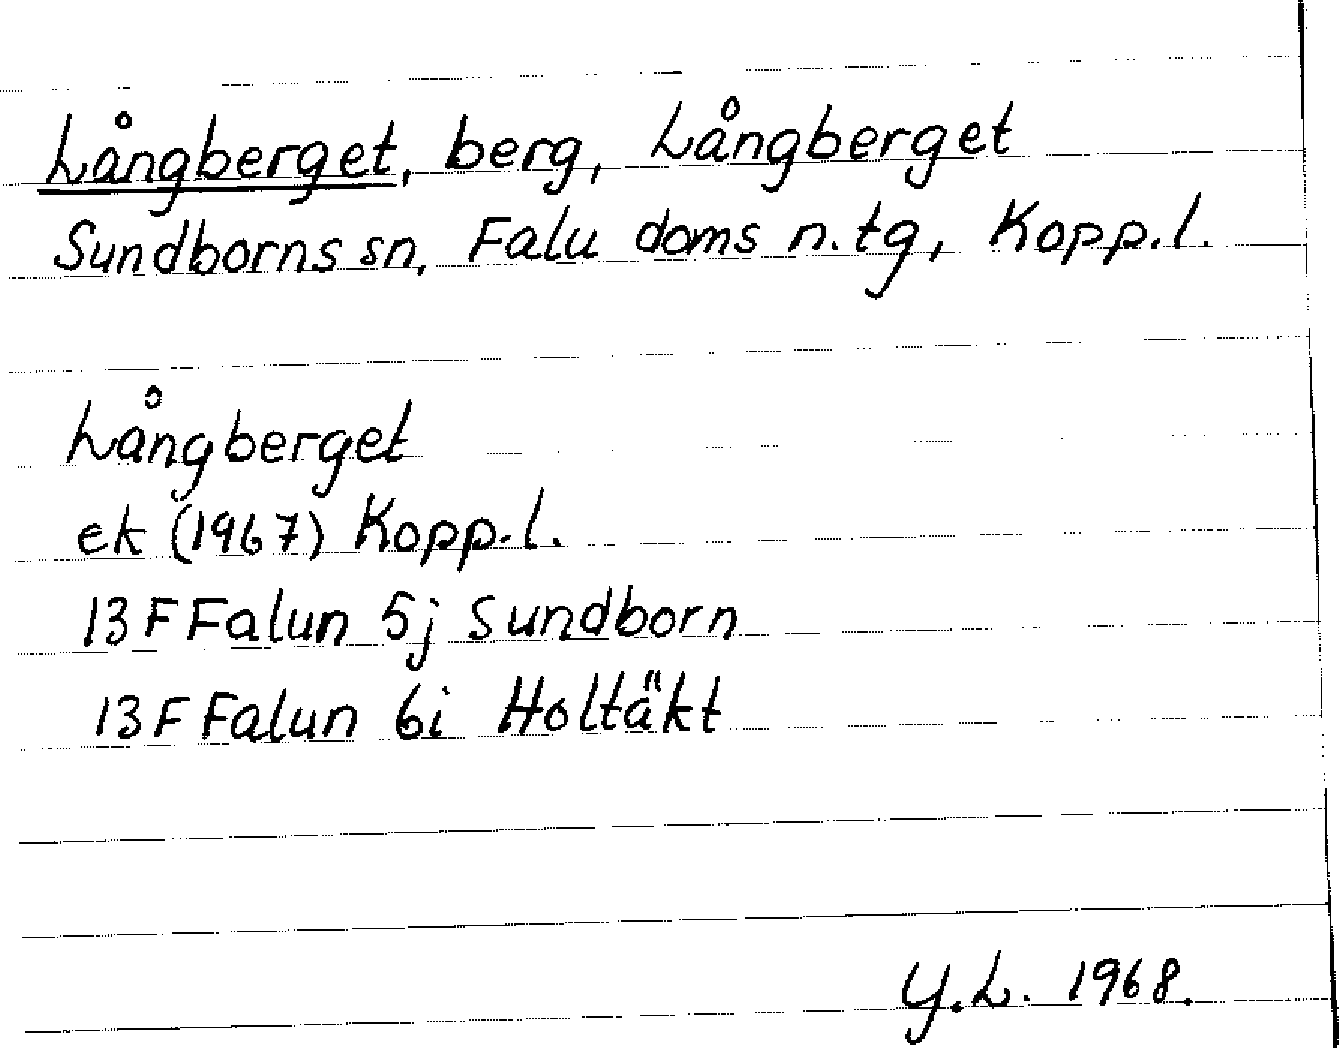 Långberget, berg, Långberget
Sundborns sn, Falu doms n.tg, Kopp.l.
Långberget
ek (1967) Kopp.l.
13F Falun 5j Sundborn
13F Falun 6i Holtäkt
Y.L. 1968.